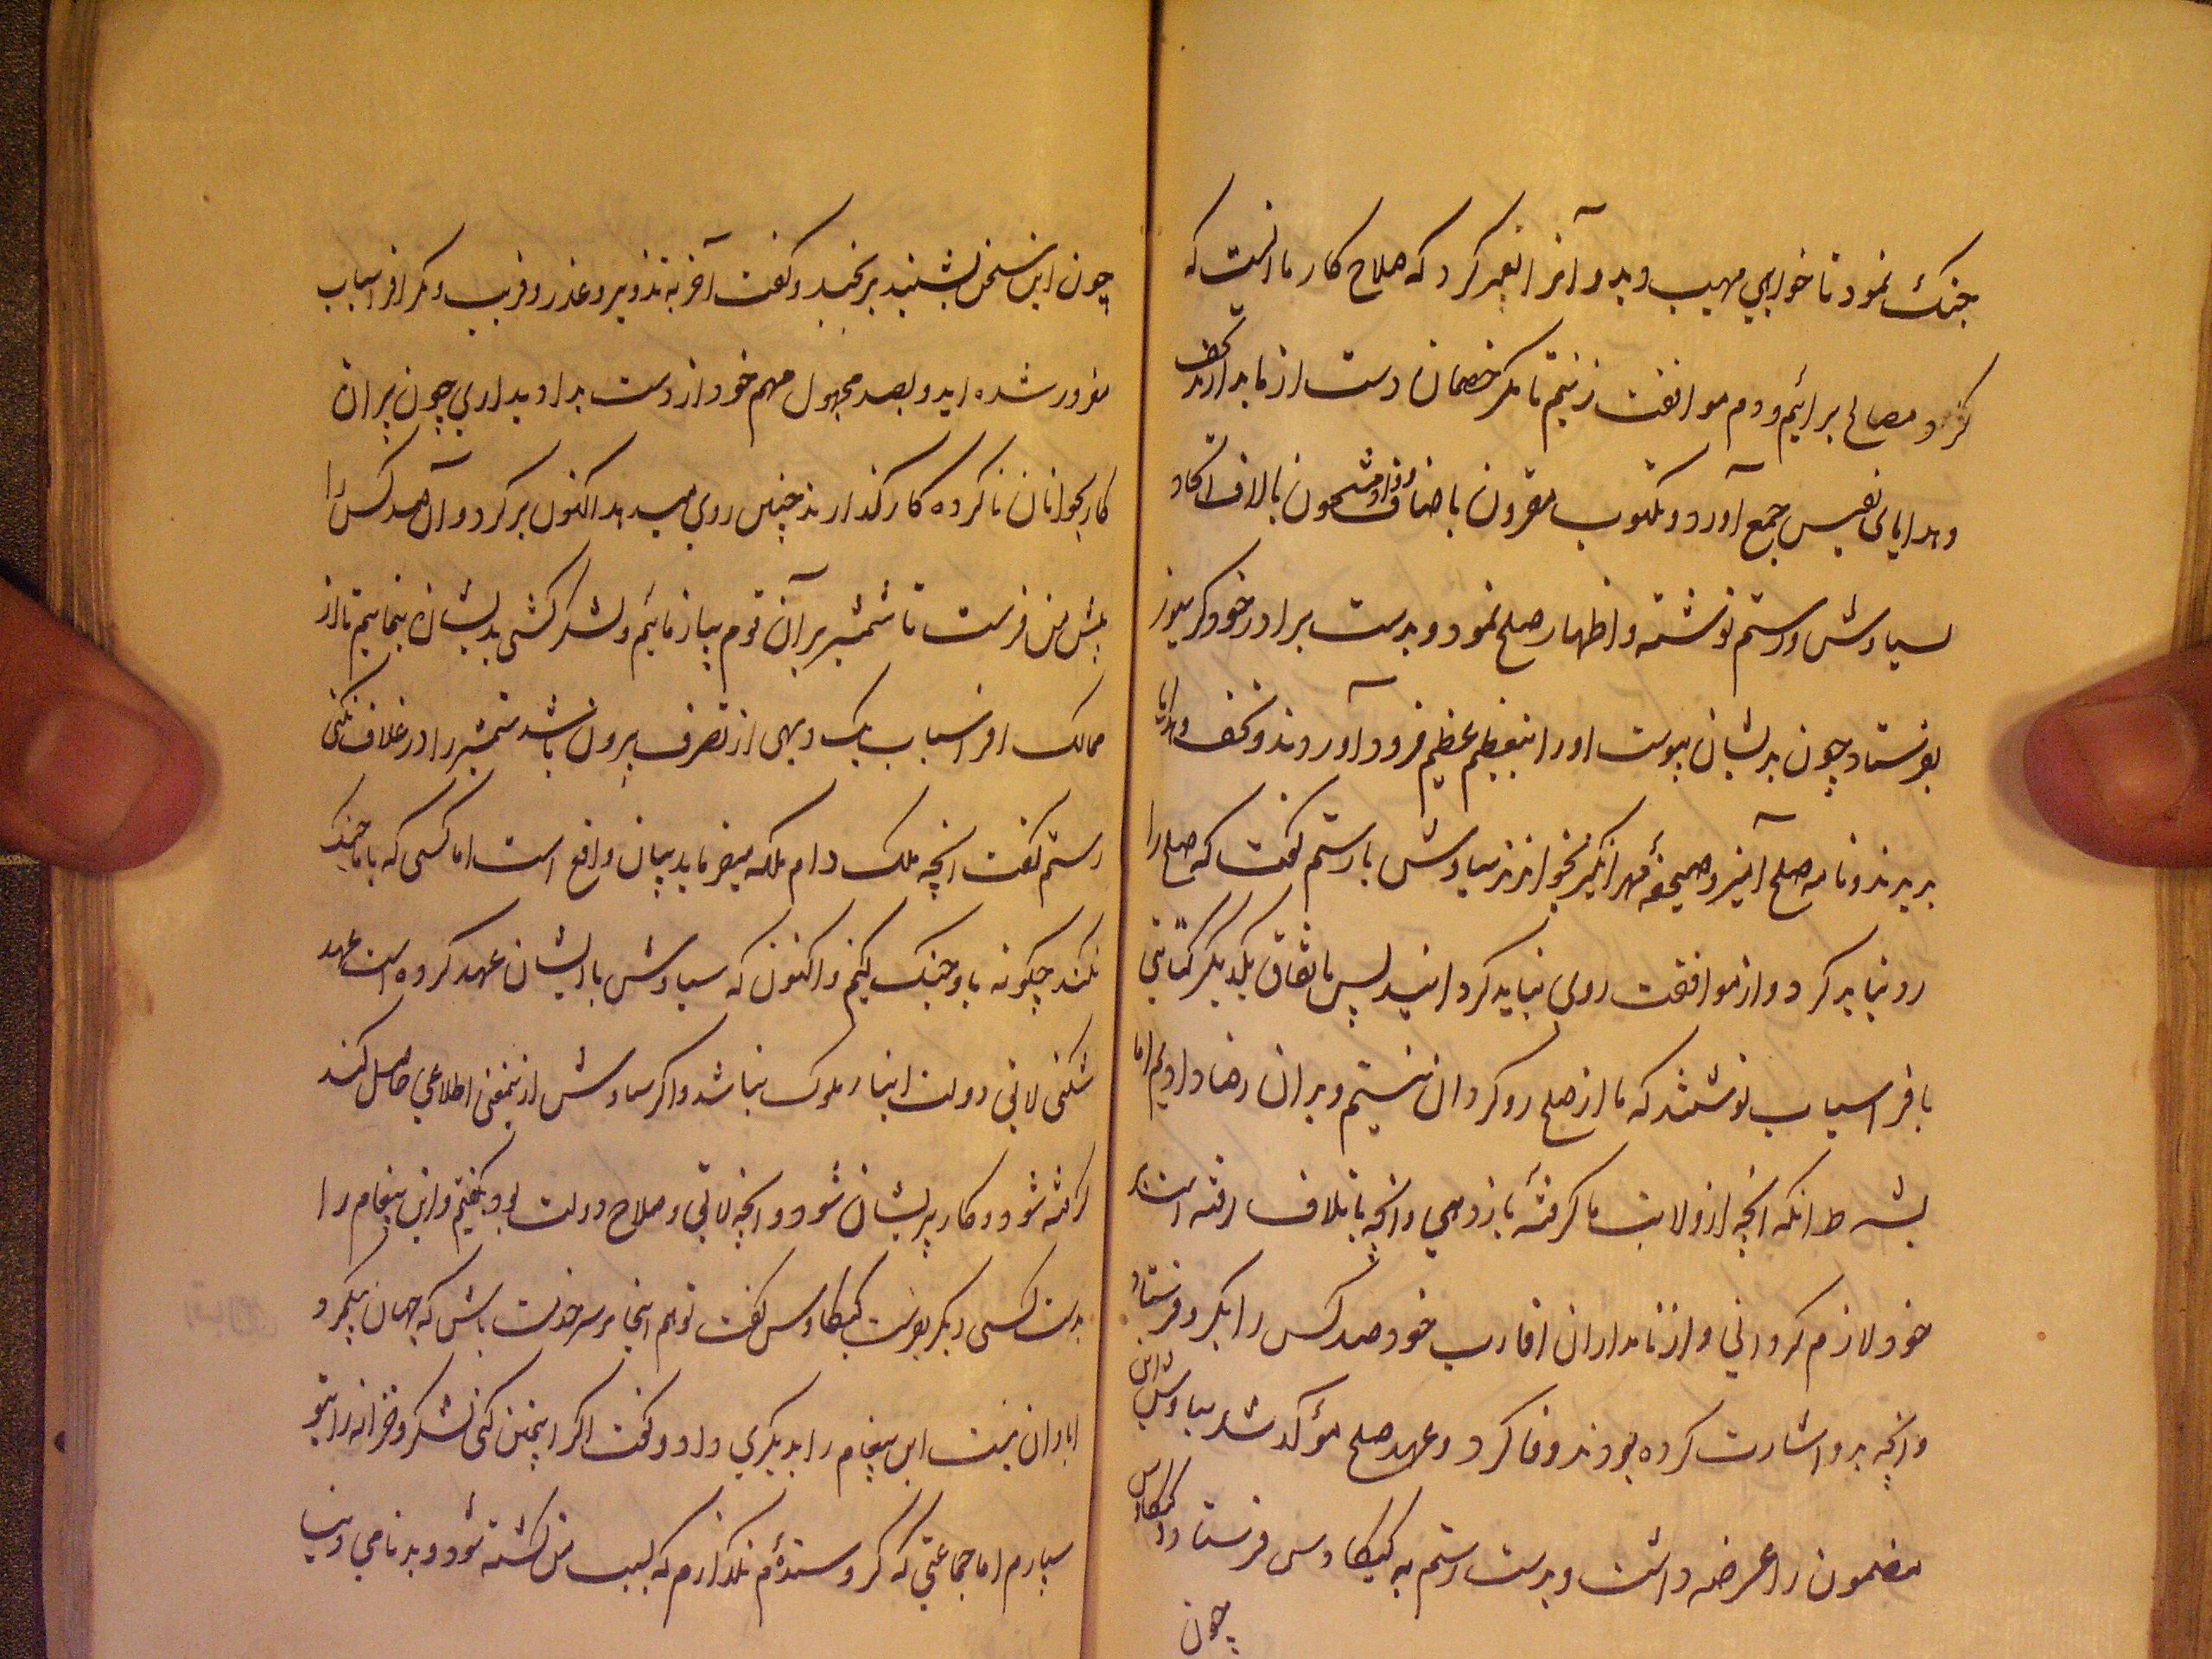 جنك نمود تا خوابی مهیب دید و آنرا تعبیر کرد که صلاح کار ما انست که
کرد مصالح برائیم و دم موافقت زنیم تا مکر خصمان دست از ما بدارند تحف
و هدایای نفیس جمع آورد و مکتوب مقرون باضاف وداد مشحون بالاف اتحاد
سیاوش و رستم نوشته و اظهار صلح نمود و بدست برادر خود کرسیوز
بفرستاد چون بدیشان پیوست او را بتعظیم عظیم فرود آوردند و تحف و هدایا
بدیدند و نامه صلح آمیز و صحیفهٔ مهر انکیز بخواندند سیاوش با رستم کفت که صلح را
رد نباید کرد و از موافقت روی نباید کردانید پس باتفاق یکدیکر کتابتی
بافراسیاب نوشتند که ما از صلح رو کردان نیستیم و بدان رضا دادیم اما
بشرط انکه انچه از ولایت ما کرفتهٔ بازدهی و انچه باتلاف رفته است بر
خود لازم کردانی و از نامداران اقارب خود صد کس را بکرو فرستاد
و انچه بدو اشارت کرده بودند وفا کرد و عهد صلح مؤکد شد سیاوش این
مضمون را عرضه داشت و بدست رستم به کیکاوس فرستاد کیکاوس
چون
چون این سخن بشنید برنجید و کفت آخر به تذویر و غدر و فریب و مکر افراسیاب
مغرور شده اید و بصد مجهول مهم خود از دست بداد بداری چون پیران
کار بجوانان ناکرده کار کذارند چنین روی میدهد اکنون برکرد و آن صد کس را
پیش من فرست تا شمشیر بر آن قوم بیازمائیم و لشکرکشی بدیشان بنمائیم تا از
ممالک افراسیاب یک دیهی از تصرف بیرون باشد شمشیر را در غلاف نکنی
رستم کفت انچه ملک دام ملکه میفرماید بیان واقع است اما کسی که با ما جنک
نکند چکونه با او جنک کنیم و اکنون که سیاوش با ایشان عهد کرده است عهد
شکنی لایق دولت ابناء ملوک نباشد و اکر سیاوش ازینمعنی اطلاعی حاصل کند
کرفته شود و کار پریشان شود و انچه لایق و صلاح دولت بود بکفتیم و این پیغام را
بدست کسی دیکر بفرست کیکاوس کفت تو هم اینجا بر سر خدمت باش که جهان بیکمرد
ابادان نیست این پیغام را بدیکری داد و کفت اکر اینچنین کنی لشکر و خزانه را بتو
سپارم اما جماعتی که کرو ستدهٔم نکذارم که بسبب من کشته شود و بدنامی دنیا